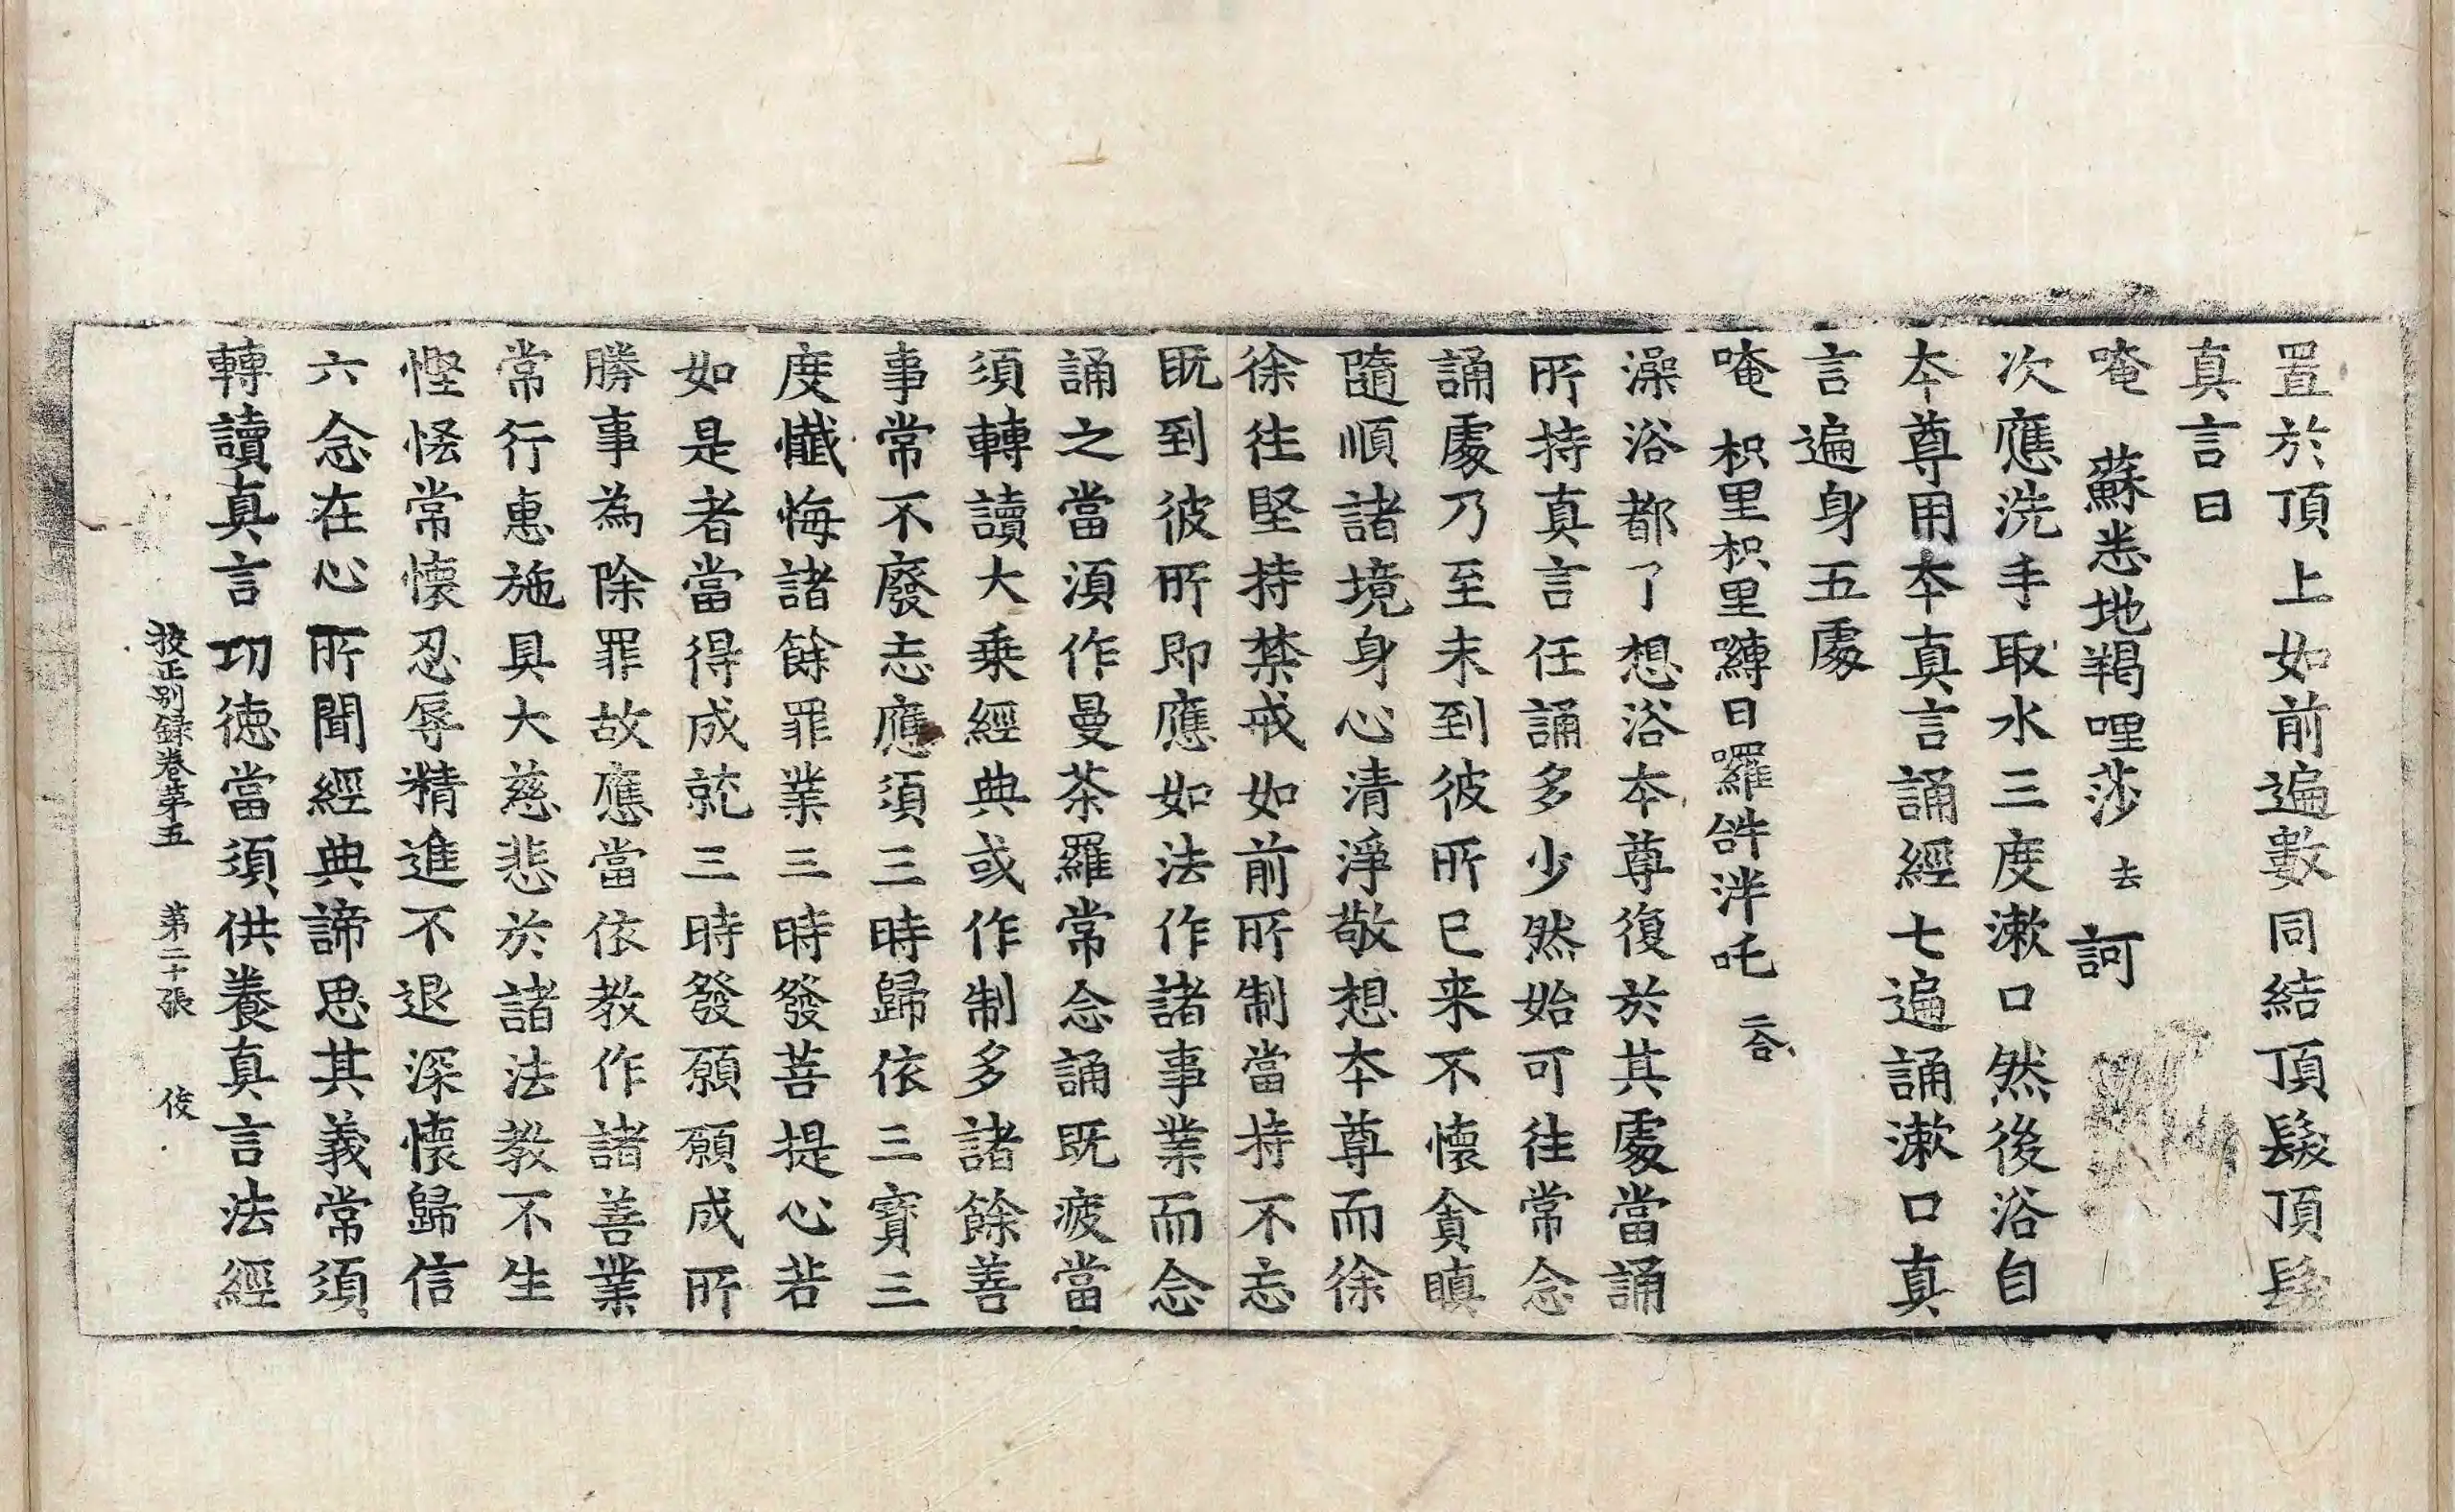 置於頂上如前遍數同結頂髮頂髮
真言曰
唵 蘇悉地羯哩莎 去 訶
次應洗手取水三度漱口然後浴自
夲尊用夲真言誦經七遍誦漱口真
言遍身五處
唵 枳里枳里嚩日囉𤙖泮吒 二合
澡浴都了想浴夲尊復於其處當誦
所持真言任誦多少然始可往常念
誦處乃至未到彼所已来不懷貪瞋
隨順諸境身心清淨敬想夲尊而徐
徐往堅持禁戒如前所制當持不忘
既到彼所即應如法作諸事業而念
誦之當須作曼茶羅常念誦既疲當
須轉讀大乗經典或作制多諸餘善
事常不廢忘應須三時歸依三寶三
度懺悔諸餘罪業三時發菩提心若
如是者當得成就三時發願願成所
勝事為除罪故應當依教作諸善業
常行惠施具大慈悲於諸法教不生
慳悋常懷忍辱精進不退深懷歸信
六念在心所聞經典諦思其義常須
轉讀真言功徳當須供養真言法經
挍正別録卷苐五 苐二十張 伎